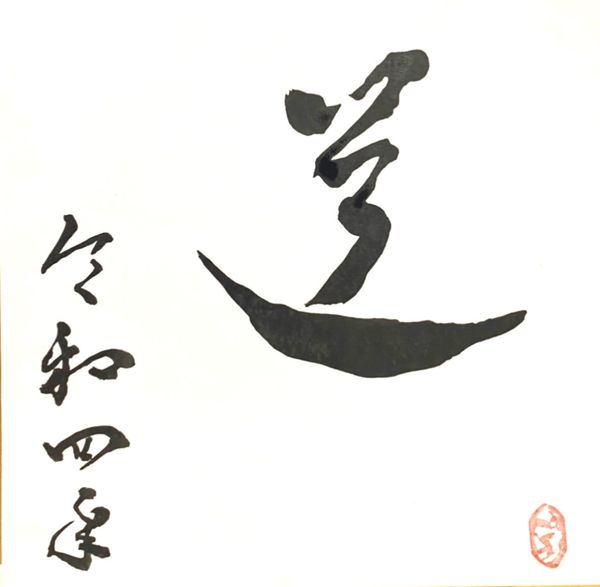 道
令和四年